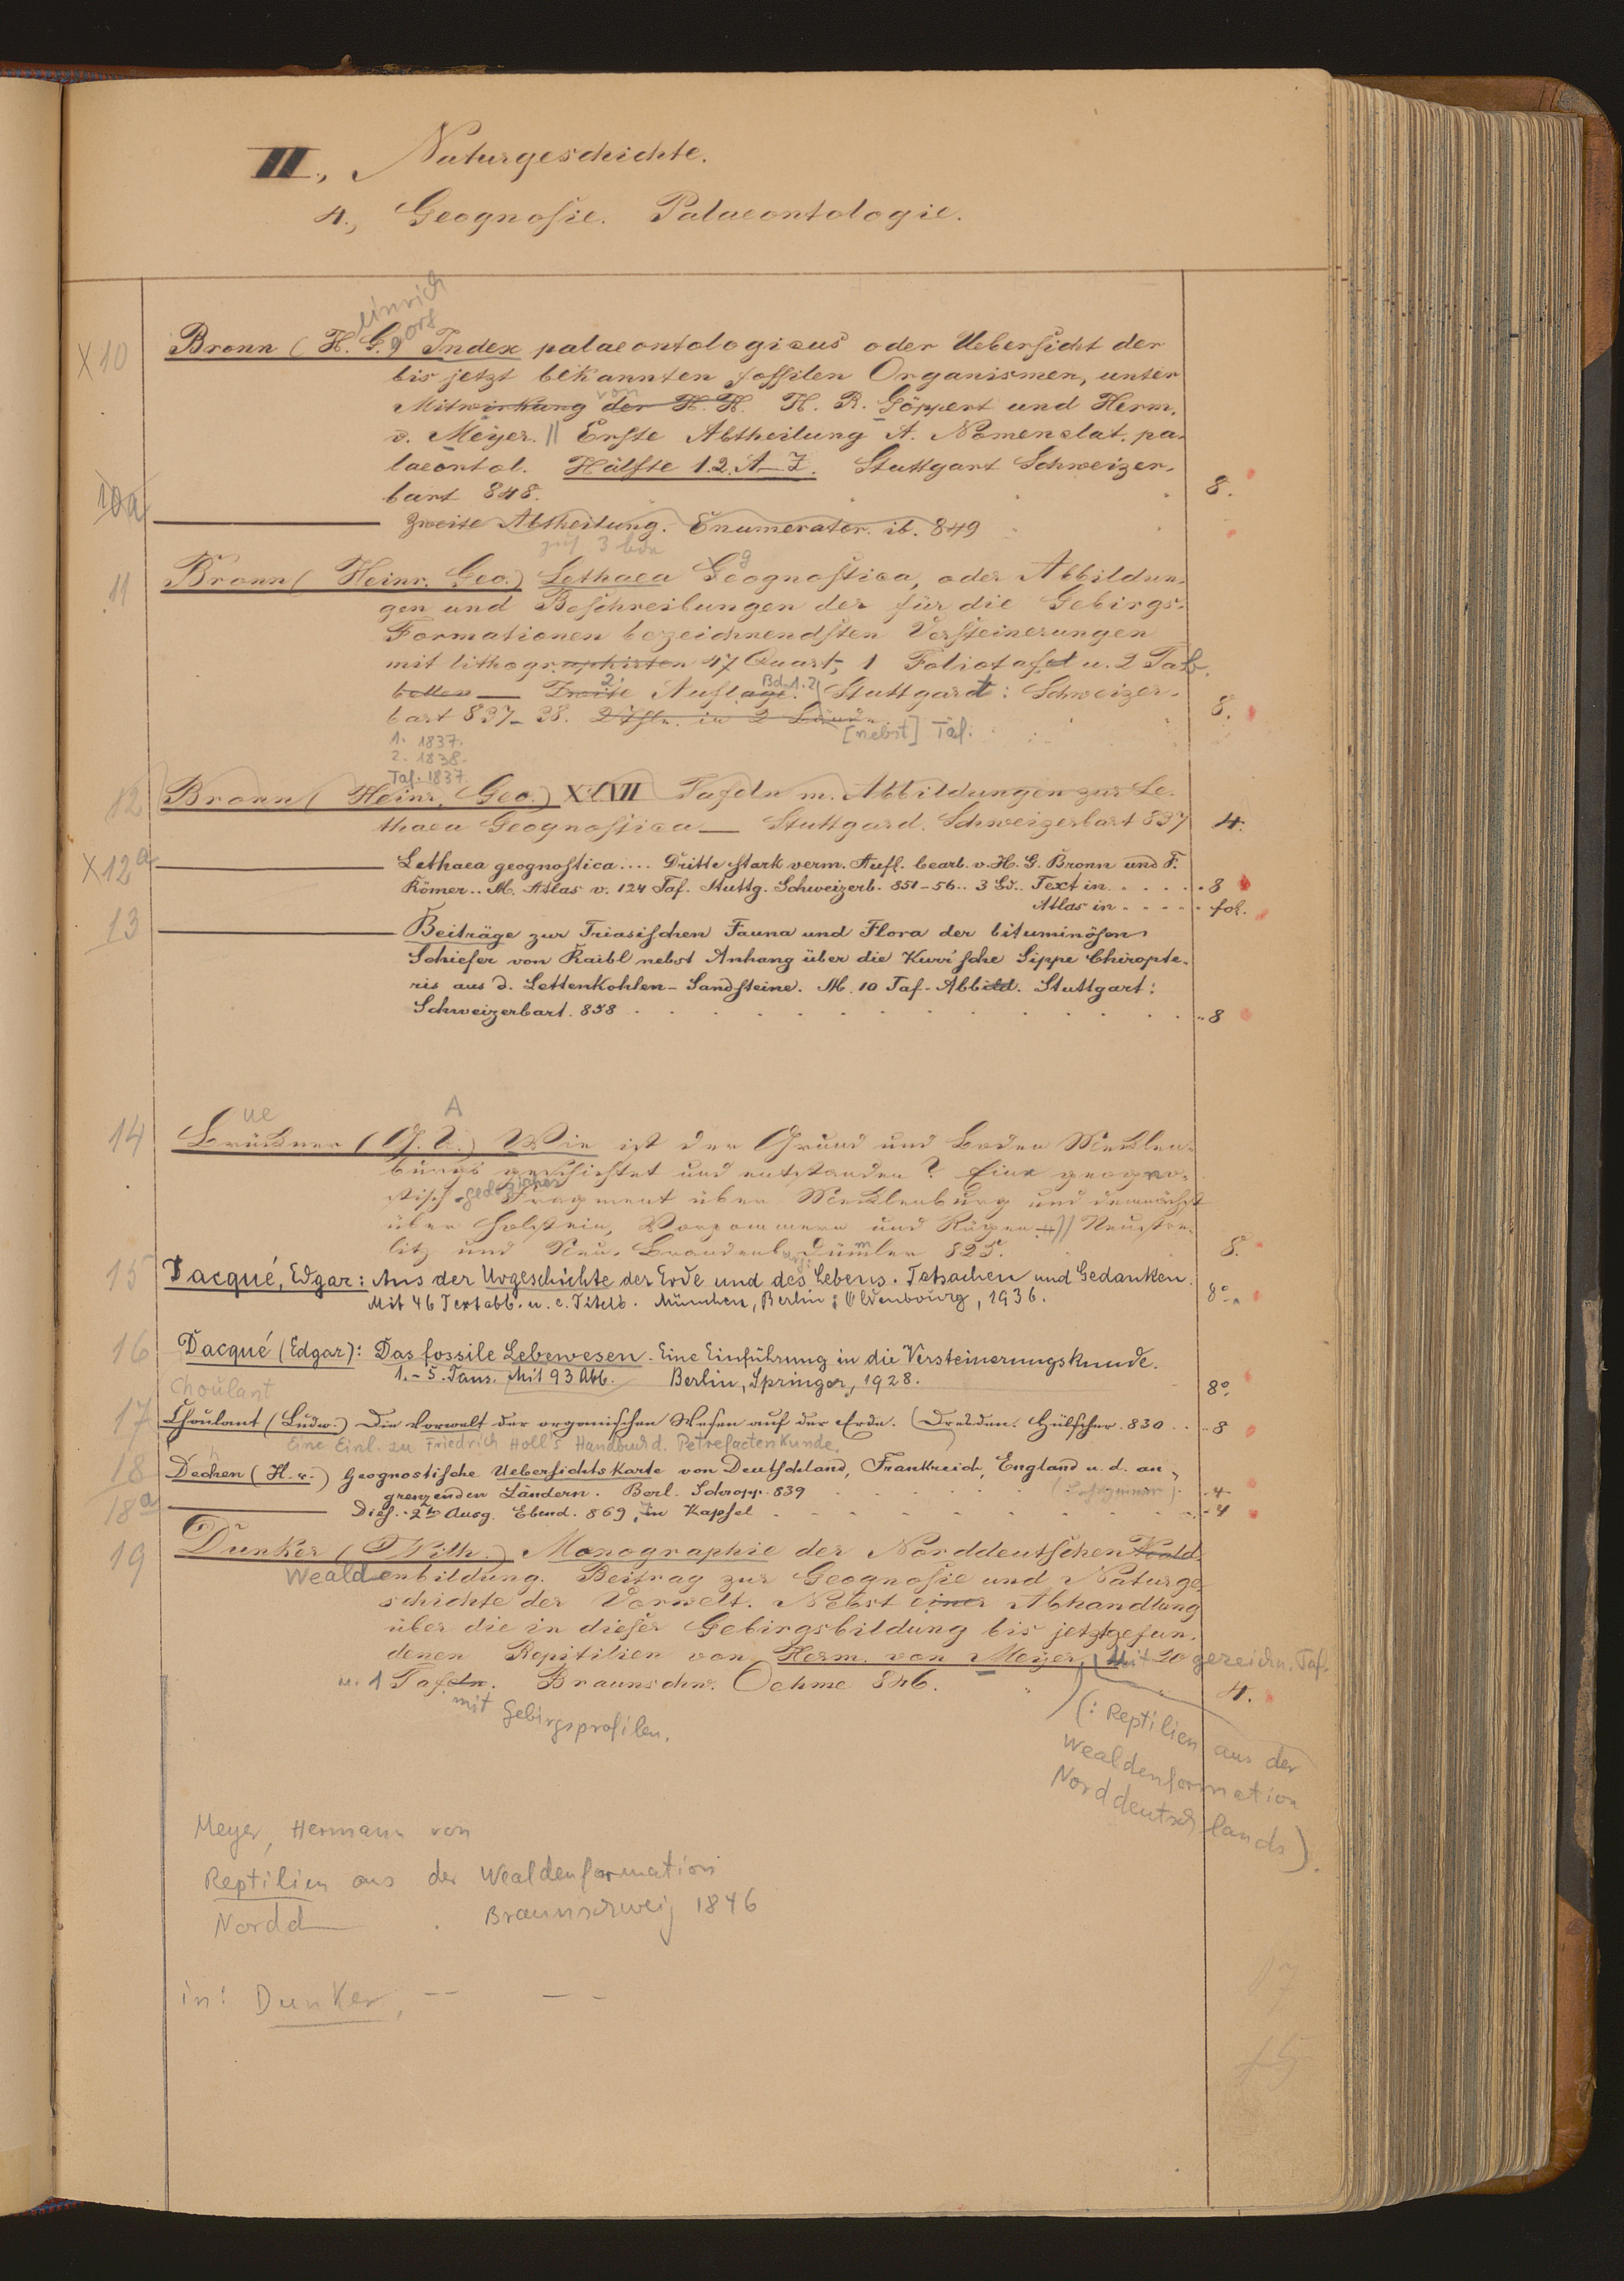 II., Naturgeschichte.
4., Geognosie. Palaeontologie.
einrich
eorg
X 10 Bronn (H. G.) Index palaeontologicus oder Uebersicht der
bis jetzt bekannten fossilen Organismen, unter
von
Mitwirkung der H. H. H. R. Göppert und Herm.
v. Meyer. || Erste Abtheilung A. Nomenclat. pa-
laeontol. Hälfte 1.2. A–Z. Stuttgart Schweizer-
bart 848. 8.
10a ——— Zweite Abtheilung. Enumerator. ib. 849
11 Bronn (Heinr. Geo.) Lethaea Geognostica, oder Abbildun-
gen und Beschreibungen der für die Gebirgs-
Formationen bezeichnendsten Versteinerungen
mit lithographirten 47 Quart-, 1 Foliotafel u. 2 Tab.
bellen — Zweite Auflage. Bd. 1.2 Stuttgardt: Schweizer-
bart 837–38. 2 Thle. in 2 Bände 8.
[nebst] Taf.
1. 1837.
2. 1838.
Taf. 1837.
12 Bronn (Heinr. Geo.) XLVII Tafeln m. Abbildungen zur Le-
thaea Geognostica — Stuttgard. Schweizerbart 837 4.
X 12a ——— Lethaea geognostica.... Dritte stark verm. Aufl. bearb. v. H. G. Bronn und F.
Römer.. M. Atlas v. 124 Taf. Stuttg. Schweizerb. 851–56.. 3 Bd.. Text in . . . . . 8
Atlas in . . . . . fol.
13 ——— Beiträge zur Triasischen Fauna und Flora der bituminösen
Schiefer von Raibl nebst Anhang über die Kurr'sche Sippe Chiropte-
ris aus d. Lettenkohlen-Sandsteine. M. 10 Taf. Abbild. Stuttgart:
Schweizerbart. 858 . . . . . 8
ue A
14 Brückner (G. A.) Wie ist der Grund und Boden Mecklen-
burgs geschichtet und entstanden? Eine geogno-
stisch-geologisches Fragment über Mecklenburg und demnächst
über Holstein, Vorpommern und Rügen || Neustre-
litz und Neu-Brandenburg: Dümmler 825. 8.
15 Dacqué, Edgar: Aus der Urgeschichte der Erde und des Lebens. Tatsachen und Gedanken.
Mit 46 Textabb. u. e. Titelb. München, Berlin: Oldenbourg, 1936. 8°
16 Dacqué (Edgar): Das fossile Lebewesen. Eine Einführung in die Versteinerungskunde.
1.–5. Taus. Mit 93 Abb. Berlin, Springer, 1928. 8°
Choulant
17 Choulant (Ludw.) Die Vorwelt der organischen Wesen auf der Erde. (Dresden. Hilscher. 830 . . 8
Eine Einl. zu Friedrich Holl's Handbuch d. Petrefactenkunde.
18 Dechen (H. v.) Geognostische Uebersichtskarte von Deutschland, Frankreich, England u. d. an-
grenzenden Ländern. Berl. Schropp. 839 . . . . 4
18a ——— Dies. 2te Ausg. Ebend. 869, in Kapsel . . . . . 4
19 Dunker (Wilh.) Monographie der Norddeutschen Weald-
Wealdenbildung. Beitrag zur Geognosie und Naturge-
schichte der Vorwelt. Nebst einer Abhandlung
über die in dieser Gebirgsbildung bis jetzt gefun-
denen Reptilien von Herm. von Meyer. Mit 20 gezeichn. Taf.
u. 1 Tafeln. Braunschw. Oehme 846. 4.
mit Gebirgsprofilen.
(: Reptilien aus der
Wealdenformation
Norddeutschlands).
Meyer, Hermann von
Reptilien aus der Wealdenformation
Nordd——. Braunschweig 1846
in: Dunker, — — —
17
15